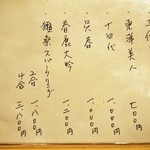 東洋美人 七〇〇円
十四代 一、〇〇〇円
呉春 一、〇〇〇円
春鹿大吟 一、二〇〇円
獺祭スパークリング 2合 一、八〇〇円
4合 三、八〇〇円